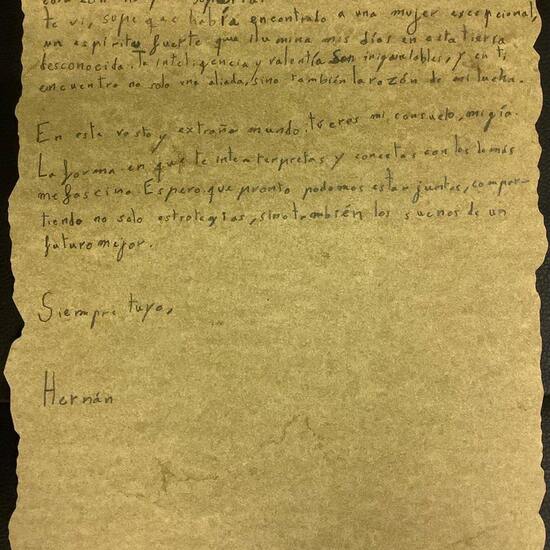 te vi, supe que había encontrado a una mujer excepcional,
un espíritu fuerte que ilumina mis días en esta tierra
desconocida. tu inteligencia y valentía son inigualables, y en ti
encuentro no solo una aliada, sino también la razón de mi lucha.
En este vasto y extraño mundo, tú eres mi consuelo, mi guía.
La forma en que te interpretas y conectas con los demás
me fascina. Espero que pronto podamos estar juntos, compar-
tiendo no solo estrategias, sino también los suenos de un
futuro mejor.
Siempre tuyo,
Hernán